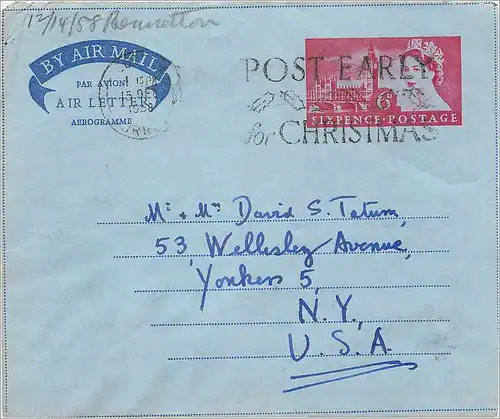 12/14/58 Bennetton
BY AIR MAIL
PAR AVION
AIR LETTER
AEROGRAMME
15 DE
1958
POST EARLY
for CHRISTMAS
6D
SIXPENCE·POSTAGE
Mr + Mrs David S. Tatum,
53, Wellesley Avenue,
Yonkers 5,
N.Y.,
U.S.A.